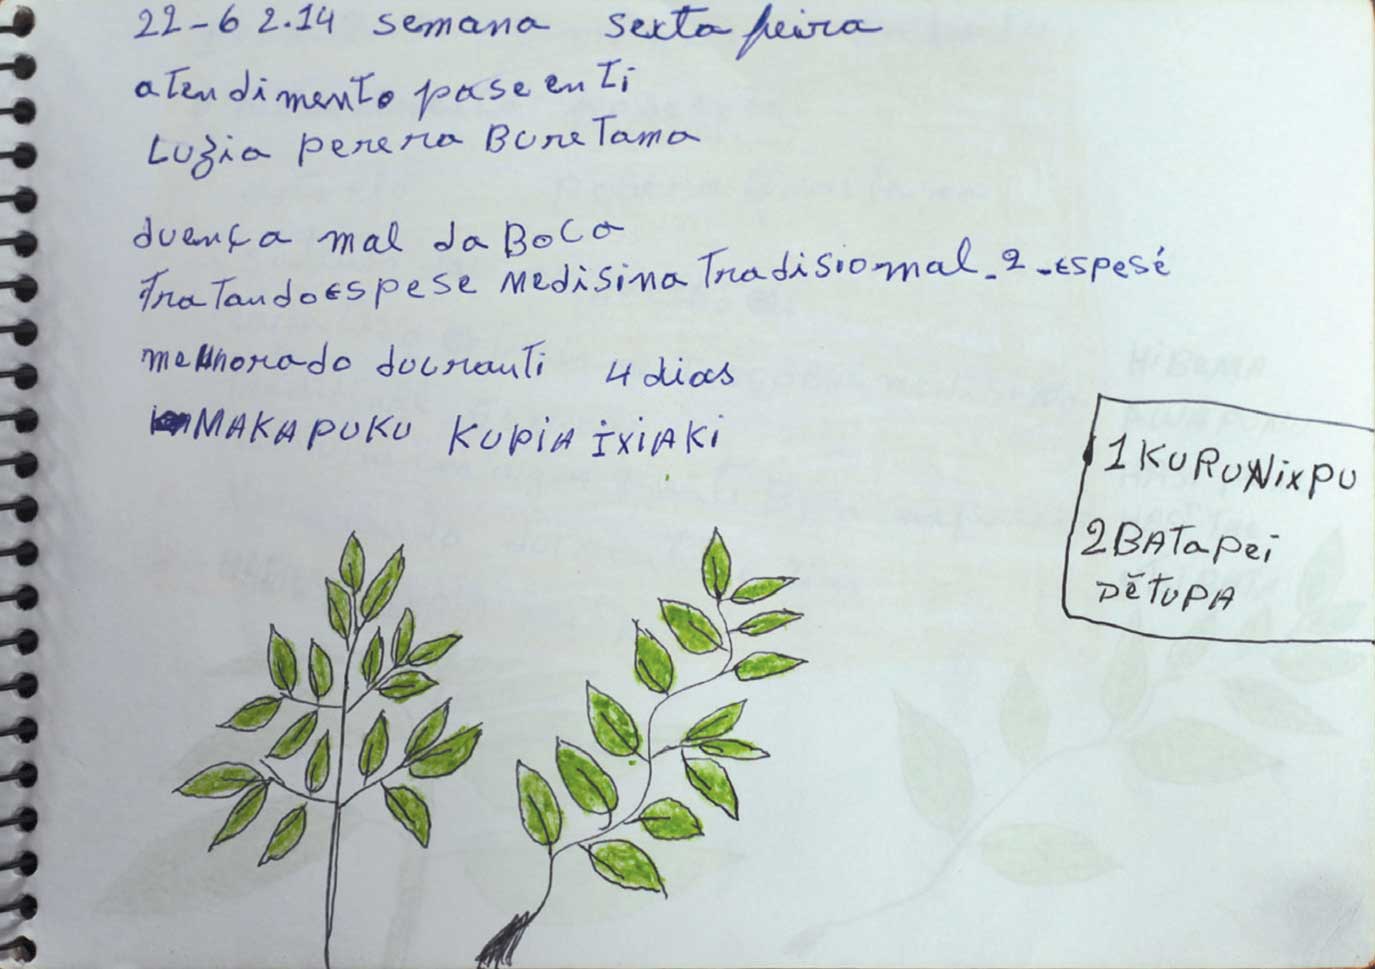 22-6 2.14 semana sexta feira
atendimento paseenti
Luzia perera Buretama
duença mal da Boca
Tratando espese Medisina Tradisiomal-2-espesé
melhorado docranti 4 dias
MAKAPUKU KUPIA IXIAKI
1 KURUNixPU
2 BATAPei
PĚTUPA